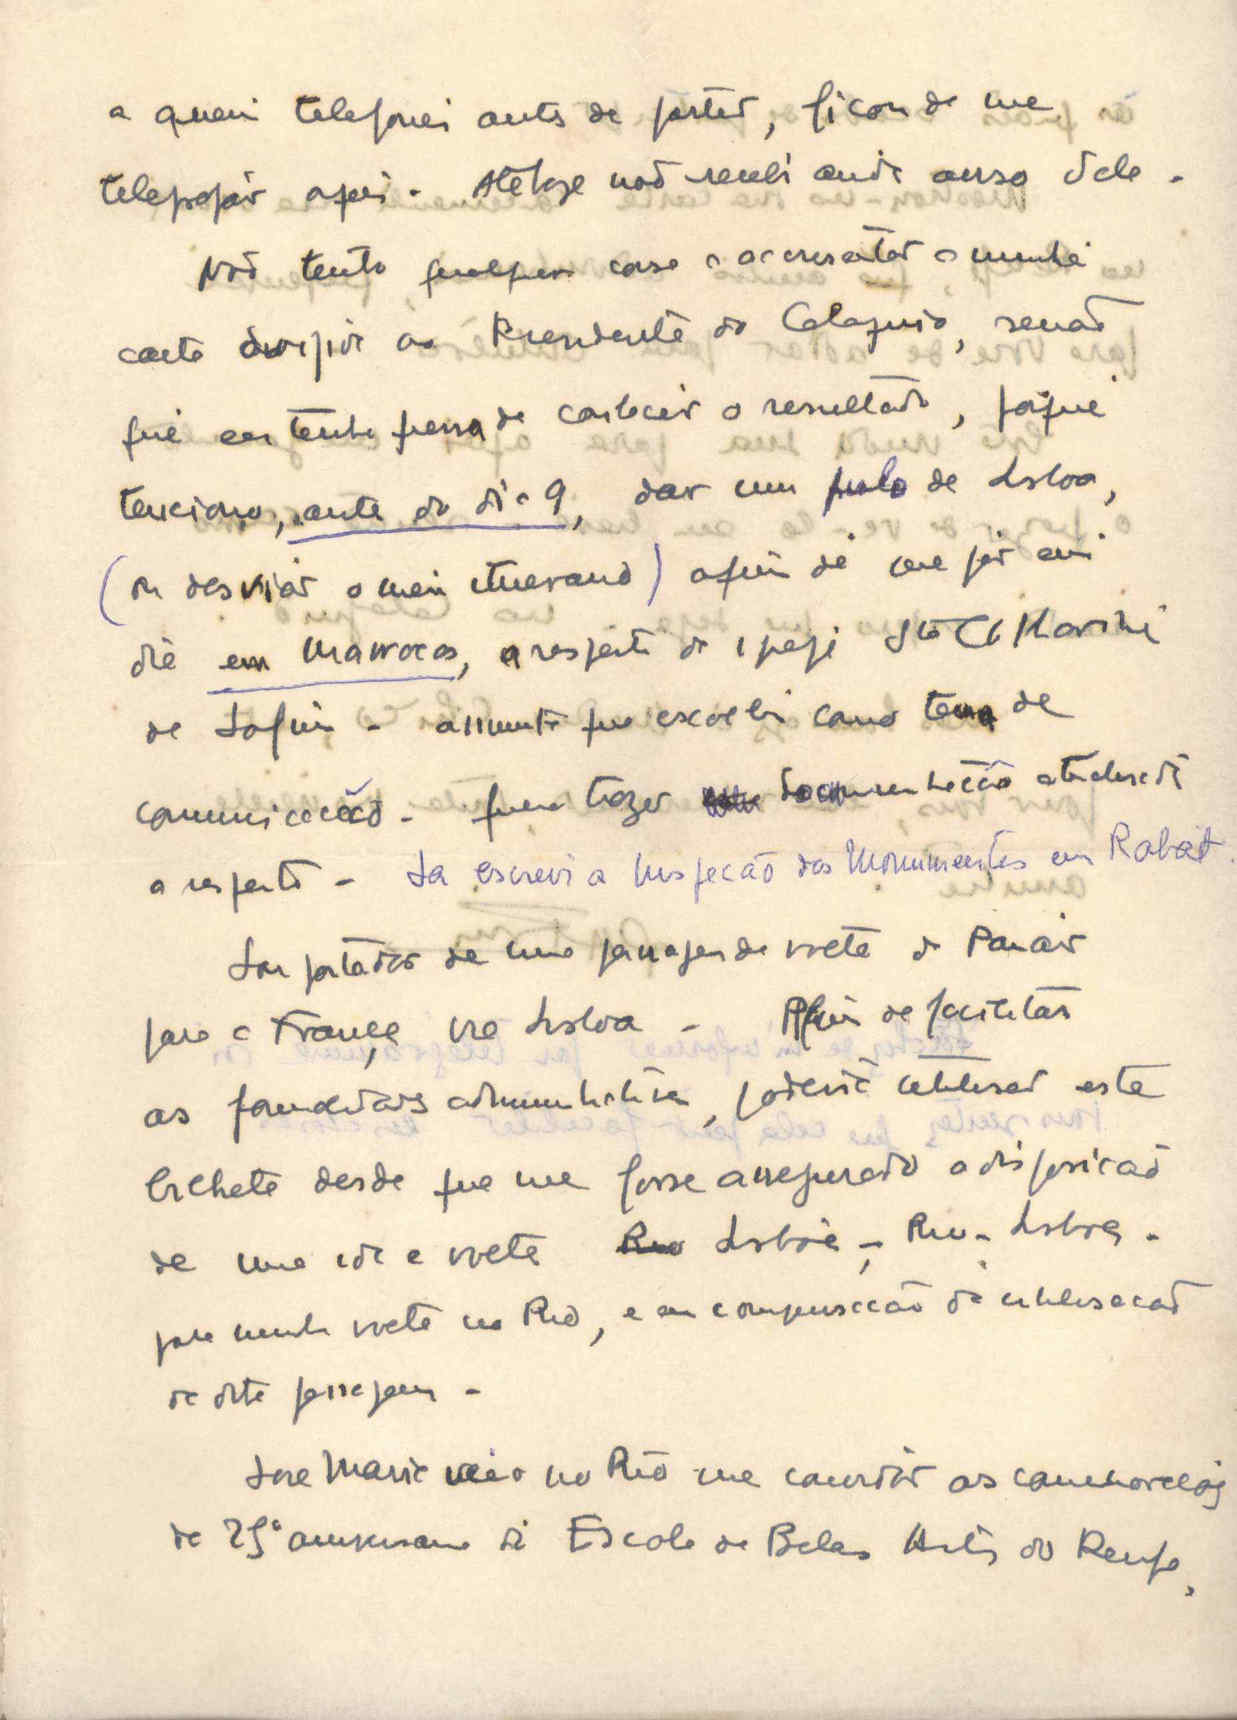 a quem telefonei antes de partir, ficou de me
telegrafar aqui. Até hoje não recebi ainda aviso dele.
Não tenho qualquer coisa a acrescentar a minha
carta dirigida ao Presidente do Coloquio, senão
que eu tenha pressa de conhecer o resultado, porque
tenciono, antes do dia 9, dar um pulo de Lisboa,
(ou desviar o meu itinerario) afim de me pôr em
dia em Marrocos, a respeito da igreja
de Safim - assunto que escolhi como tema de
comunicação. Quero trazer documentação atualisada
a respeito - Ja escrevi a Inspeção dos Monumentos em Rabat.
Sou portador de uma passagem de volta da Panair
para a França, via Lisboa - Afim de facilitar
as formalidades administrativas, poderia utilisar este
bilhete desde que me fosse assegurado a disposição
de uma ida e volta Rio Lisboa - Rio - Lisboa -
para minha volta no Rio, e em compensação da utilisação
da dita passagem -
José Maria veio no Rio me convidar as comemorações
do 25º aniversario da Escola de Belas Artes do Recife,